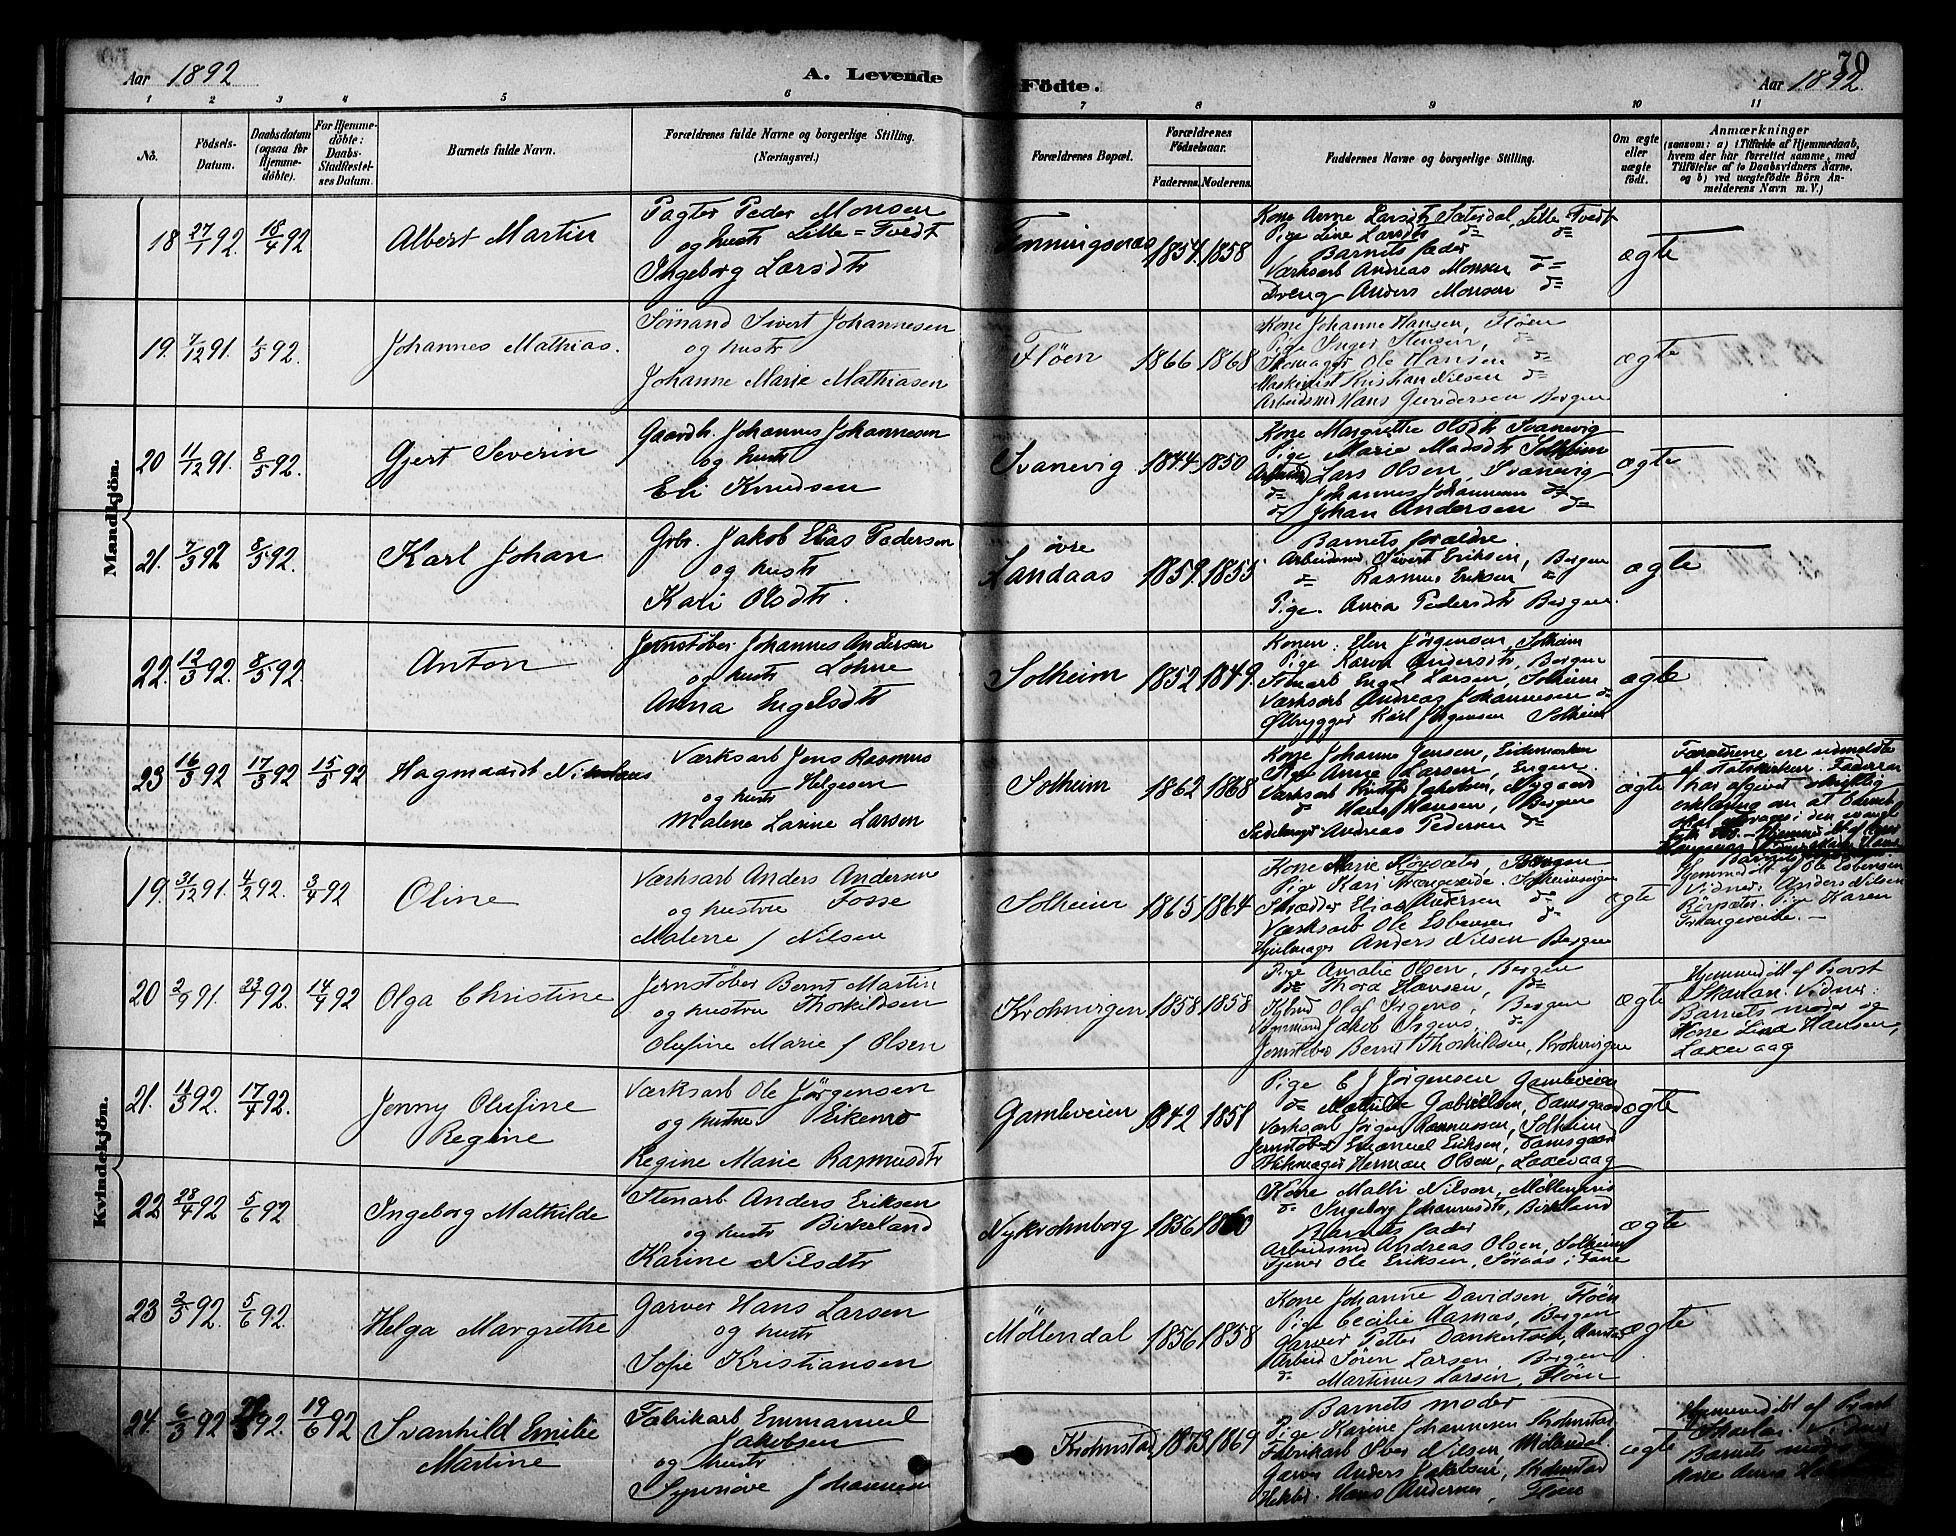 70
Aar 1892
A. Levende
Födte.
Aar 1892.
1 2 3 4 5 6 7 8 9 10 11
No.
Födsels-Datum.
Daabsdatum (ogsaa for Hjemme-döbte).
For Hjemme-döbte: Daabs-Stadfestel-ses Datum.
Barnets fulde Navn.
Forældrenes fulde Navne og borgerlige Stilling.
(Næringsvei.)
Forældrenes Bopæl.
Forældrenes Födselsaar.
Faderens. Moderens.
Faddernes Navne og borgerlige Stilling.
Om ægte eller uægte födt.
Anmærkninger
(saasom: a) i Tilfælde af Hjemmedaab, hvem der har forrettet samme, med Tilföielse af to Daabsvidners Navne, og b) ved uægtefödte Börn An-melderens Navn m. V.)
Mandkjön.
18 27/1 92. 18/4 92
Albert Martin
Pagter Peder Monsen
og hustr Lille=Tvedt
Ingeborg Larsdtr
1854. 1858
Kone Anne Larsdtr Sæterdal, Lille Tvedt
Pige Line Larsdtr d=
Barnets fader
Værksarb Andreas Monsen d=
Dreng Anders Monsen d=
ægte
19. 7/12 91. 1/5 92.
Johannes Mathias.
Sömand Sivert Johannesen
og hustr
Johanne Marie Mathiasen
Flöen 1866 1868
Kone Johanne Hansen, Flöen
Pige Inger Stensen, d=
Skomager Ole Hansen d=
Maskinist Kristian Nilsen d=
Arbeidsmd Hans Gundersen Bergen
ægte
20 11/12 91. 8/5 92.
Gjert Severin
Gaardb. Johannes Johannesen
og hustr
Eli Knudsen
Svanevig 1844. 1850
Kone Margrethe Olsdtr Svanevig
Pige Marie Madsdtr Solheim
Lars Olsen, Svanevig
d= Johannes Johannesen d=
d= Johan Andersen d=
ægte
21. 7/3 92 8/5 92.
Karl Johan
Grbr. Jakob Elias Pedersen
og hustr
Kari Olsdtr.
övre
Landaas 1859. 1855
Barnets forældre.
Arbeidsmd Sivert Eriksen, Bergen
d= Rasmus Eriksen d=
Pige. Anna Pedersdtr Bergen.
ægte
22. 12/3 92. 8/5 92
Anton
Jernstøber Johannes Andersen
og hustr Lohne
Anna Engelsdtr
Solheim 1852 1849.
Konen: Elen Jörgensen, Solheim
Pige Karen Andersdtr, Bergen
Stenarb Engel Larsen, Solheim
Værksarb Andreas Johannesen d=
Ølbrygger Karl Jörgensen Solheim
ægte
23 16/3 92 17/3 92 15/5 92
Hagmaadt Nikolaus
Værksarb Jens Rasmus
og hustr Helgesen
Malene Larine Larsen
Solheim 1862 1868
Kone Johanne Jensen, Eidemarken
Pige Anne Larsen, Engen.
Værksarb Jakobsen, Nygaard
d= Hans Hansen, Bergen
Andreas Pedersen d=
ægte
Forældrene ere udmeldte
af statskirken. Faderen
har afgivet skriftlig
erklæring om at Barnet
skal opdrages i den evangel
Kvindekjön.
19. 31/12 91. 4/2 92. 3/4 92
Oline
Værksarb Anders Andersen
og hustru Fosse
Malene f Nilsen
Solheim 1865 1864
Skrædder Elias Andersen d=
Værksarb Ole Esbensen d=
Hjulmager Anders Nilsen Bergen
ægte
Hjemmedöbt af Ole Esbensen
Vidner: Anders Nilsen
20 2/9 91. 92. 92
Olga Christine
Jernstöber Bernt Martin
og hustru Thorkildsen
Olufine Marie f Olsen
Krohnvigen 1858 1858
Pige Amalie Olsen, Bergen
d= Thora Hansen, d=
Jernstöber Bernt Thorkildsen, Krohnvigen
ægte
Hjemmedöbt af Provst
Skarlan. Vidner:
Barnets moder og
Kone Lina Hansen,
Laxevaag
21. 11/3 92. 17/4 92.
Jenny Olufine
Regine
Værksarb Ole Jörgensen
og hustru Eikemo
Regine Marie Rasmusdtr
Gamleveien 1842 1851
Pige E J Jörgensen Gamleveien
d= Mathilde Gabrielsen, Damsgaard
Værksarb Jörgen Rasmussen, Solheim
Jernstöber Emanuel Eriksen, Damsgaard
Blikmager Herman Olsen, Laxevaag
ægte
22 28/4 92 5/6 92
Ingeborg Mathilde
Stenarb Anders Eriksen
og hustr Birkeland
Karine Nilsdtr
Nykrohnborg 1856 1860
Kone Malli Nilsen, Möllenpris
d= Ingeborg Johannesdtr, Birkeland
Barnets fader
Arbeidsmd Andreas Olsen, Solheim
Tjener Ole Eriksen, Söraas i Fane
ægte
23 2/5 92. 5/6 92.
Helga Margrethe
Garver Hans Larsen
og hustr
Sofie Kristiansen
Möllendal 1856 1858
Kone Johanne Davidsen Flöen
Pige Cecilie Aasnas, Bergen
Garver Petter Dankertsen, Aarstad
Arbeid Sören Larsen, Bergen
d= Martinus Larsen, Flöen
ægte
24. 6/3 92 92. 19/6 92
Svanhild Emilie
Martine
Fabrikarb Emmanuel
Jakobsen
og hustr
Synnöve Johannesen
Krohnstad 1873 1869
Barnets moder
Pige Karine Johannesen Krohnstad
Fabrikarb Iver Nilsen Möllendal
Garver Anders Jakobsen, Krohnstad
Hans Andersen, Flöen
ægte
Hjemmedöbt af Provst
Skarlan. Vidner
Barnets moder og
Kone Anna